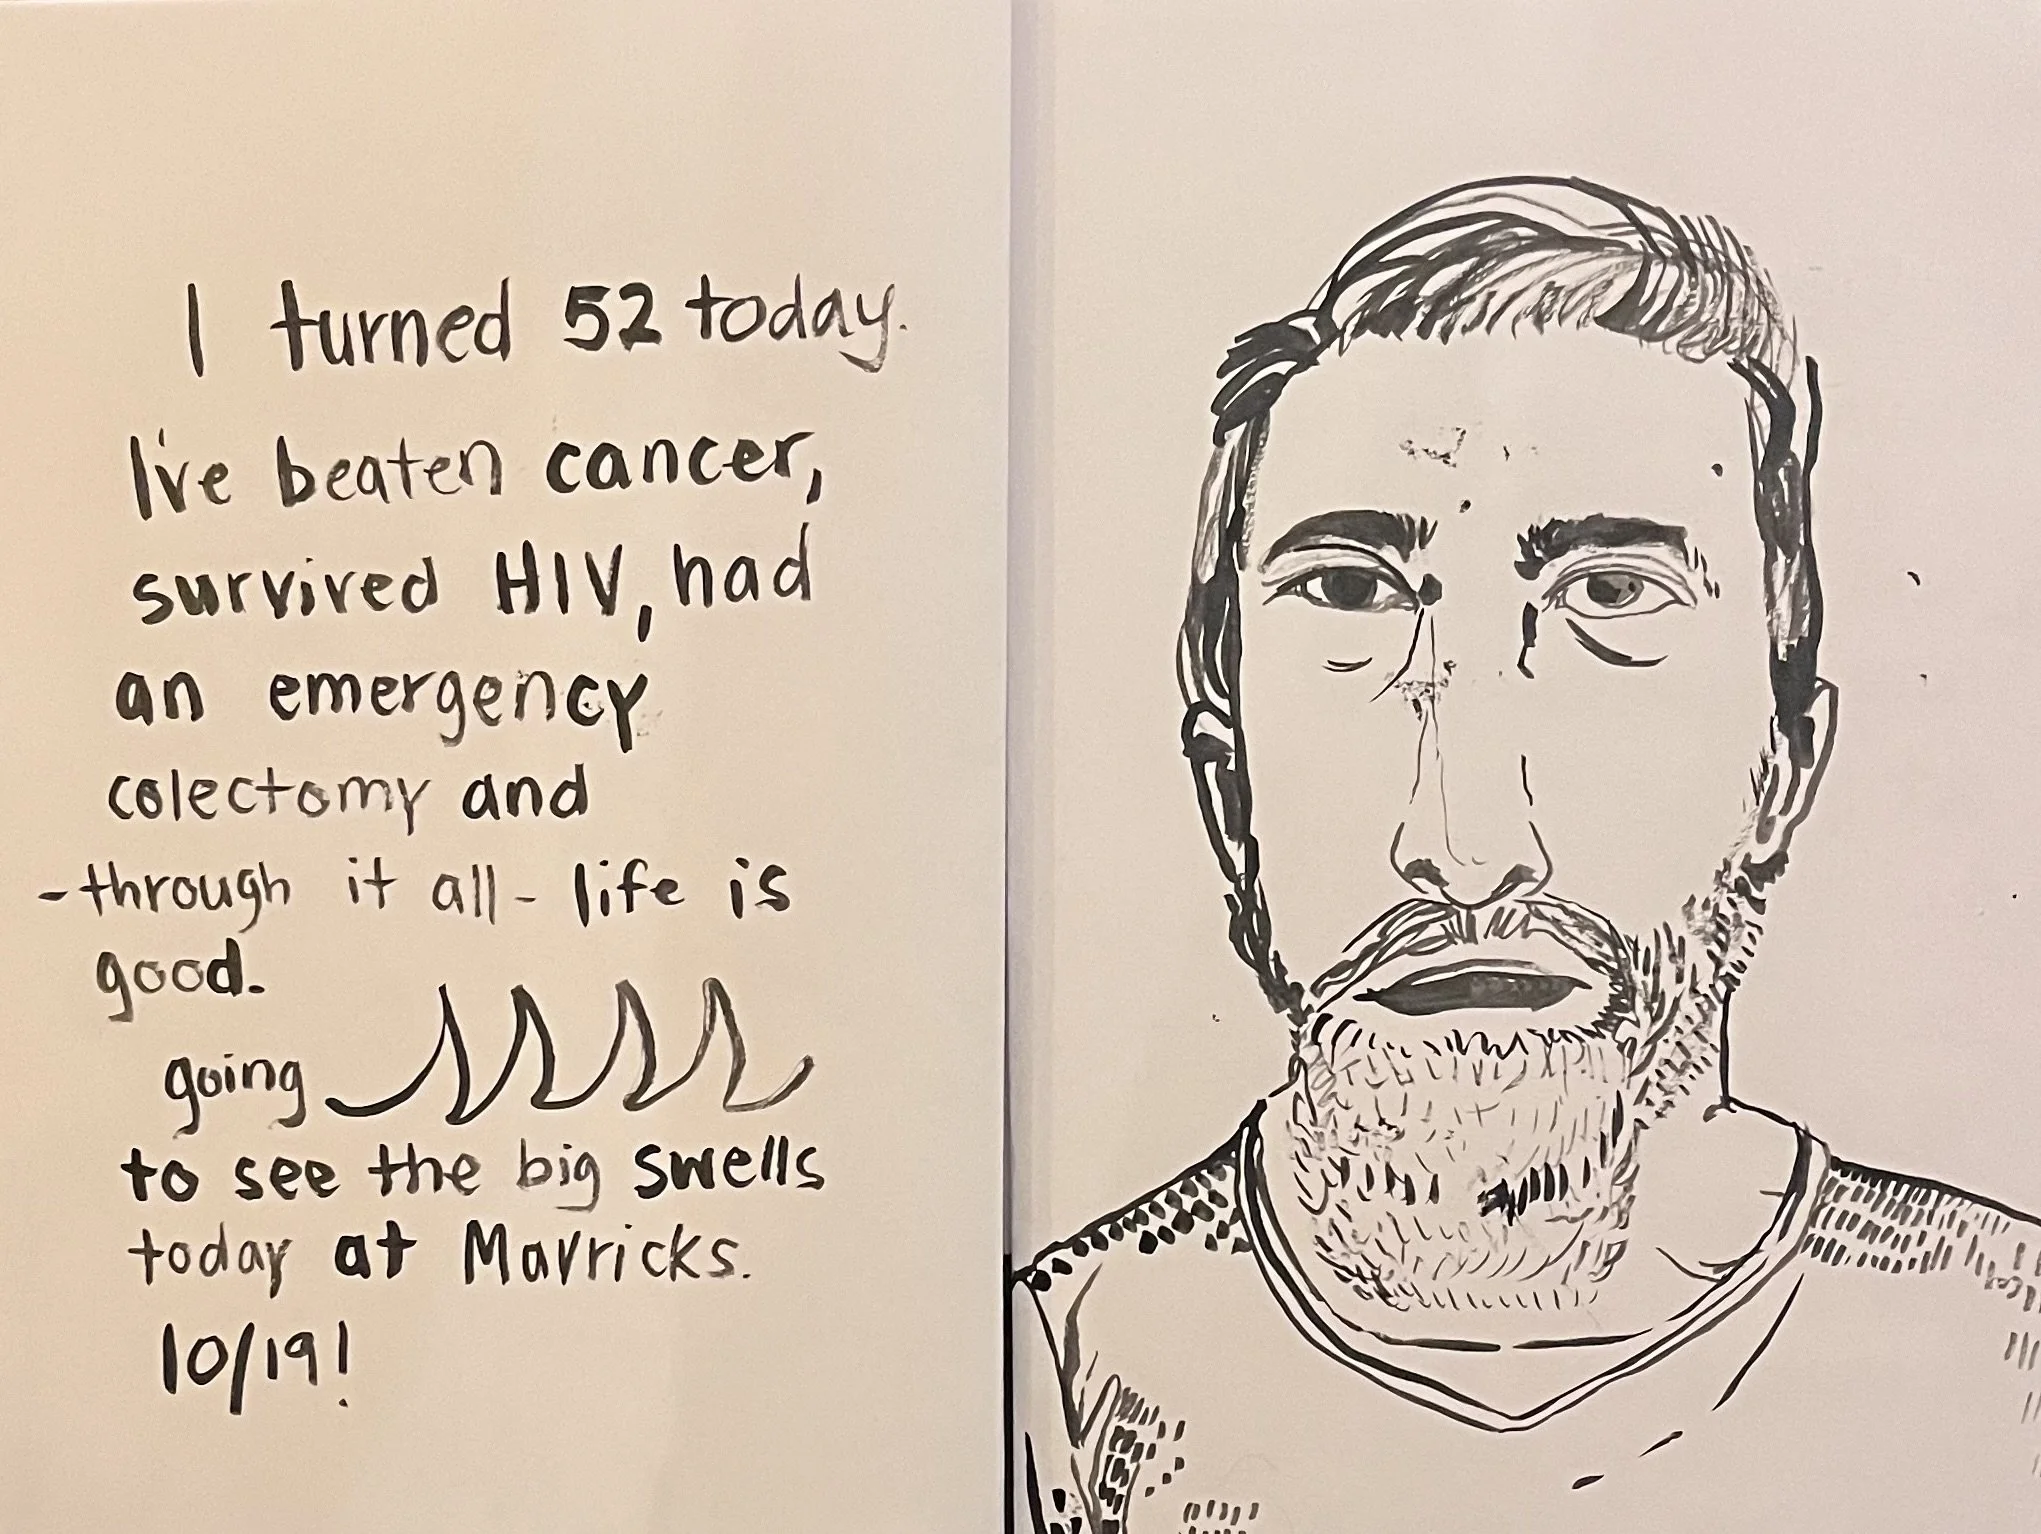 I turned 52 today.
I've beaten cancer,
survived HIV, had
an emergency
colectomy and
-through it all- life is
good.
going
to see the big swells
today at Mavricks.
10/19!